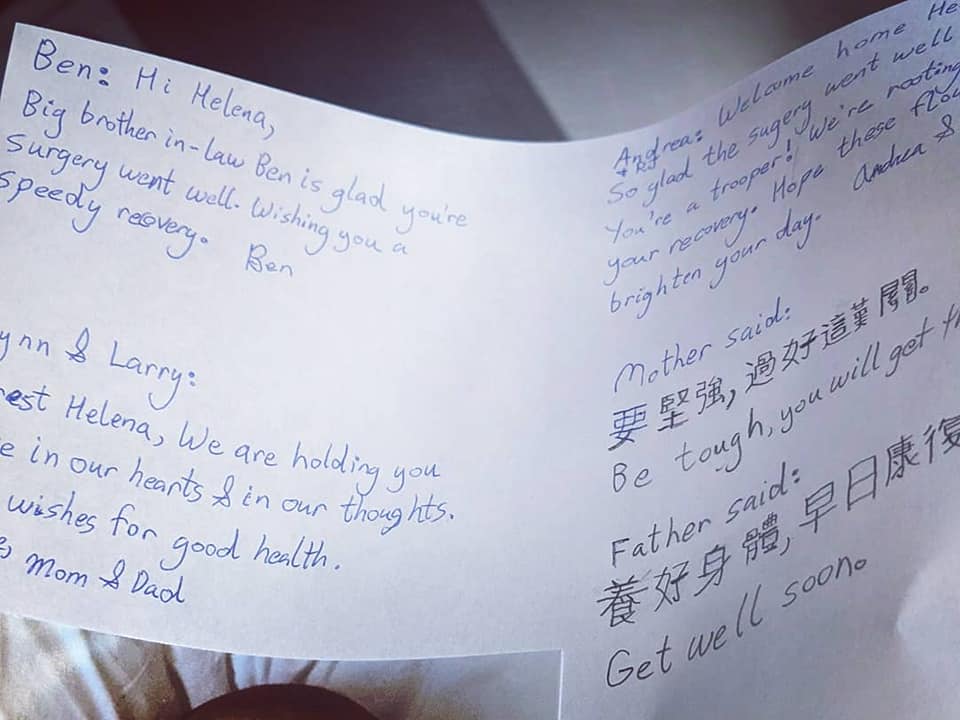 Ben: Hi Helena,
Big brother in-law Ben is glad you're
Surgery went well. Wishing you a
speedy recovery. Ben
& Larry:
Helena, We are holding you
in our hearts & in our thoughts.
wishes for good health.
Mom & Dad
Andrea: Welcome home
+ RJ
So glad the sugery went well
You're a trooper! We're rooting
your recovery. Hope these
brighten your day. Andrea &
Mother said:
要堅強,過好這關。
Be tough, you will get
Father said:
養好身體,早日康復
Get well soon.